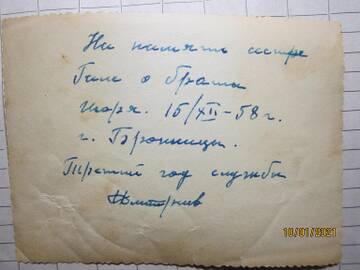 На память сестре
Гале о брата
Игоря. 15/XII-58 г.
г. Бронницы.
Третий год службы
10/01/2021